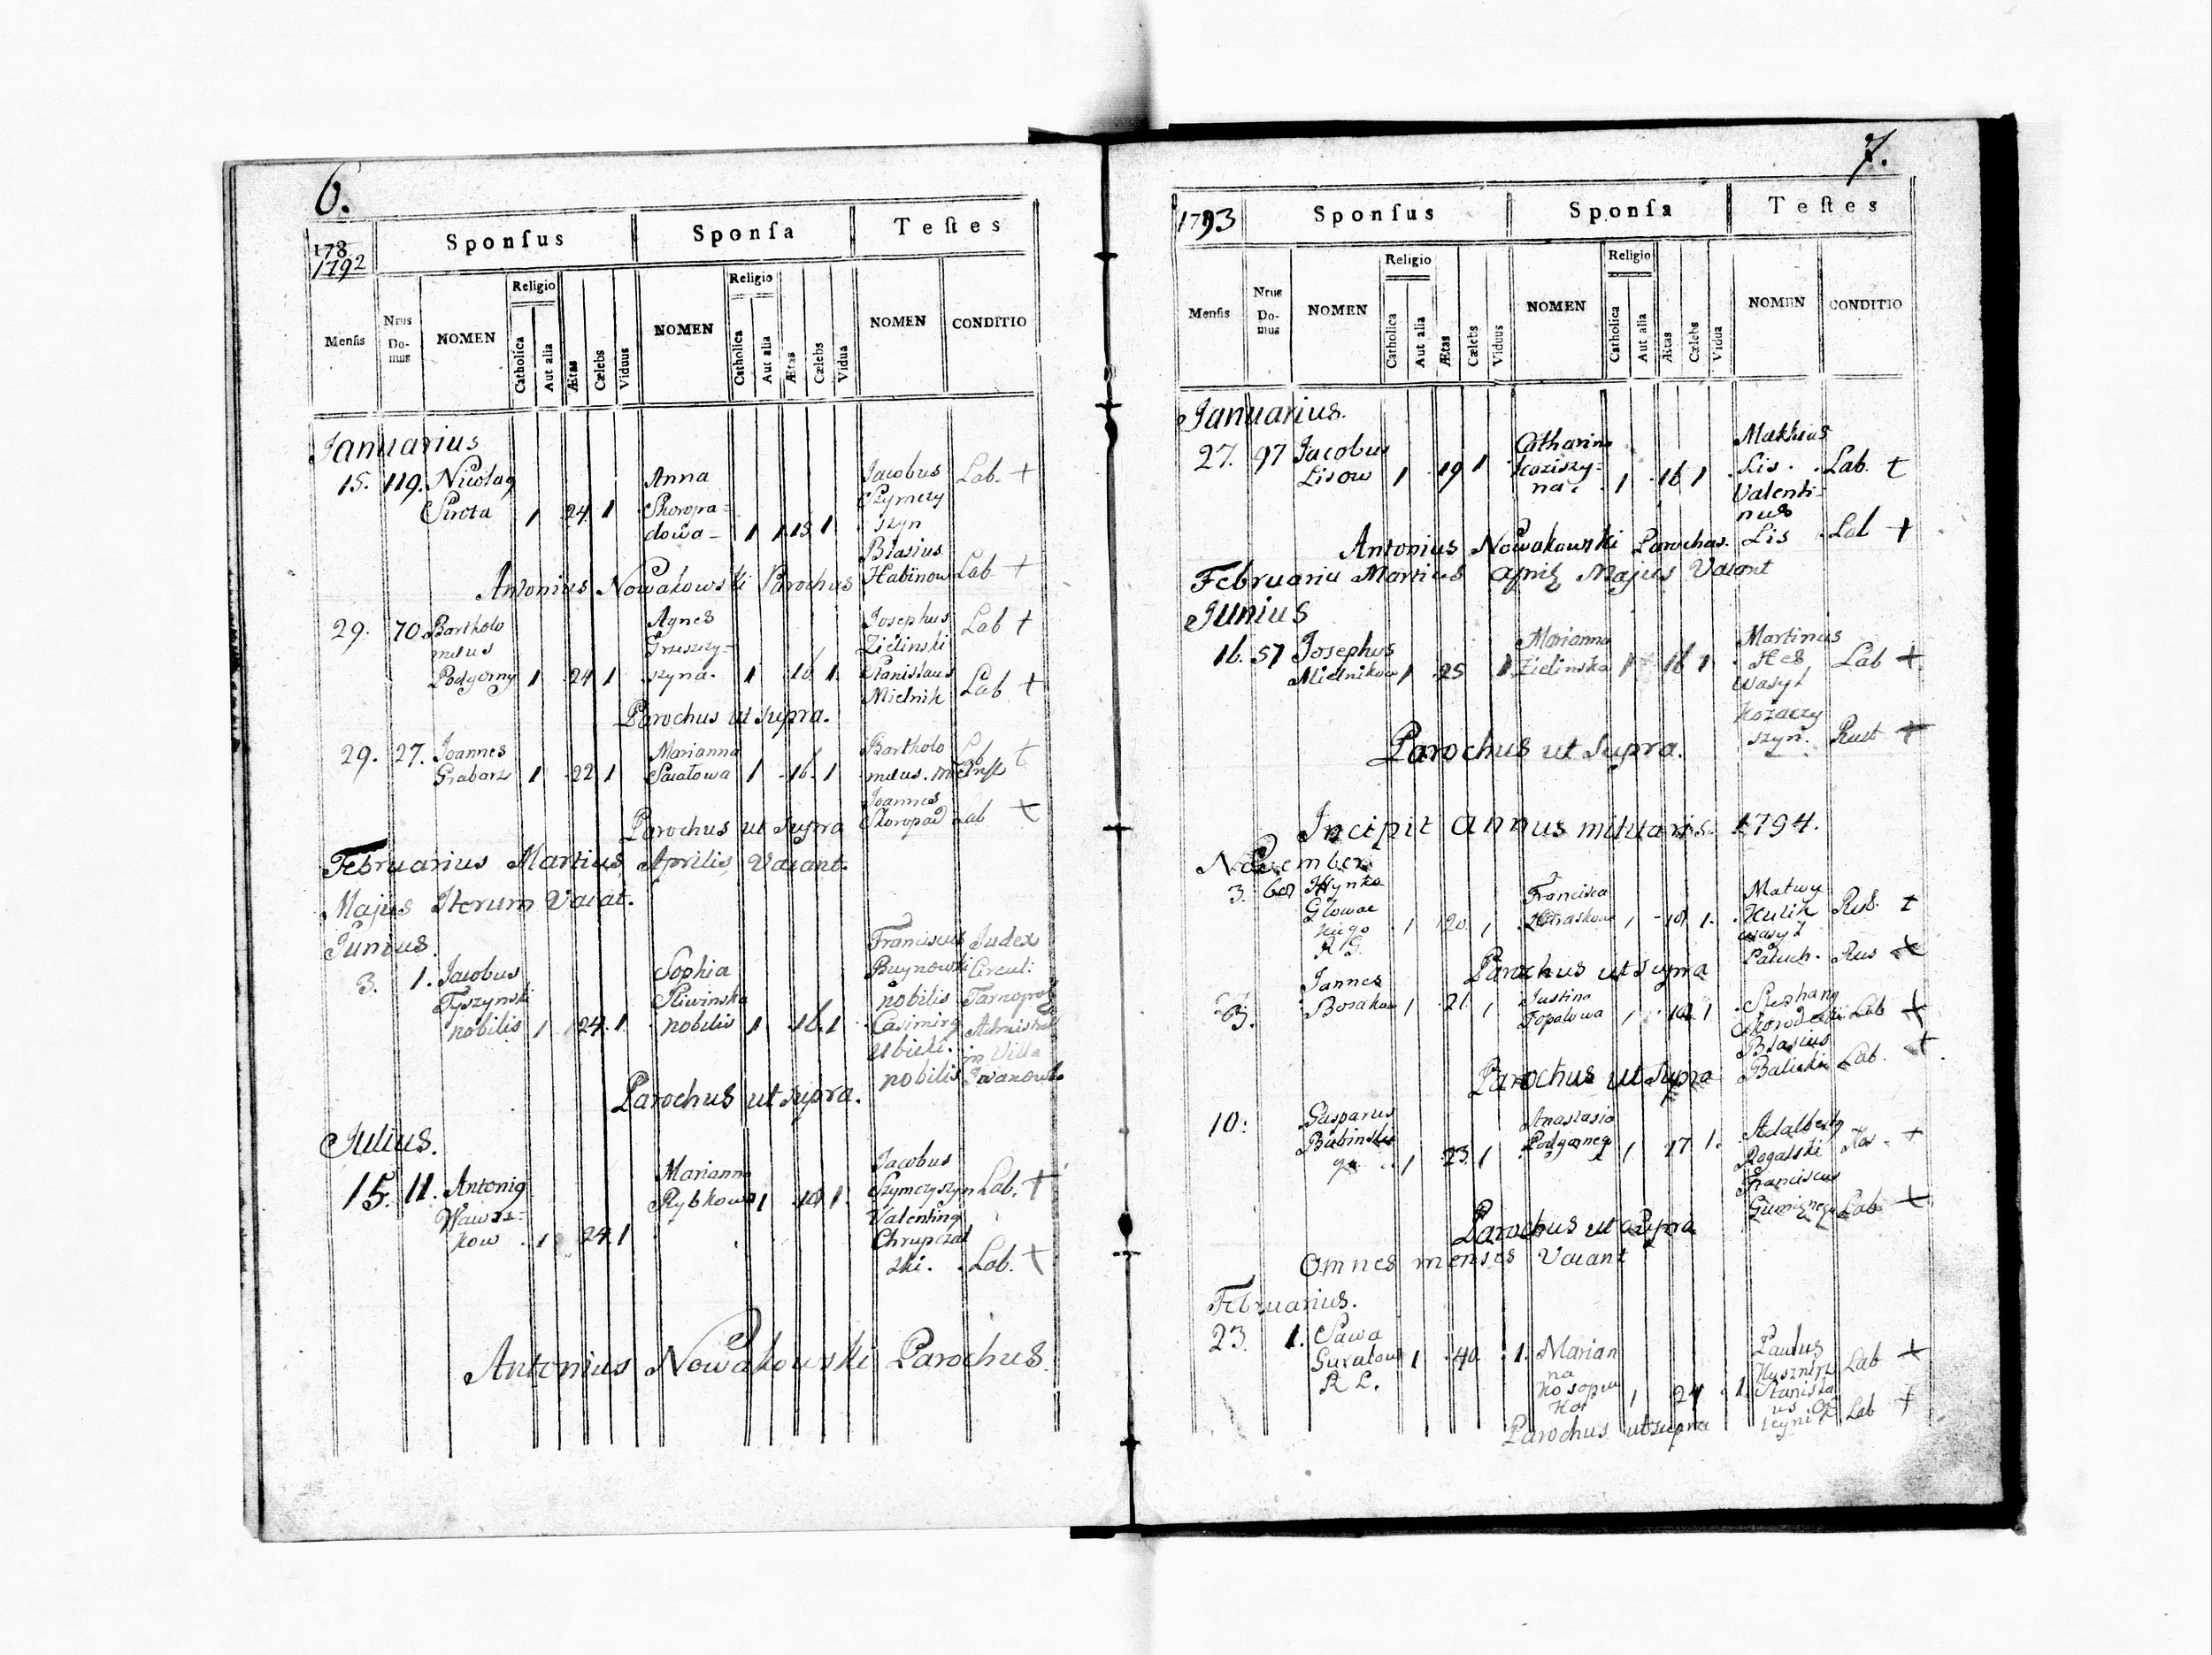 6.
178
1792
Sponſus
Sponſa
Teſtes
Menſis
Nrus Do-mus
NOMEN
Religio
Catholica
Aut alia
Ætas
Cælebs
Viduus
NOMEN
Religio
Catholica
Aut alia
Ætas
Cælebs
Vidua
NOMEN
CONDITIO
Januarius
15. 119. Nicolaq Anna Jacobus Lab. +
Sirota 1 24 1 Skoropa= Szymczy
dowa- 1 1 18 1 szyn
Blasius
Antonius Nowakowski Parochus Habinow Lab +
29. 70 Bartholo Agnes Josephus Lab +
meus Grzeszzy= Zielinski
Podgorny 1 24 1 szyna. 1 16 1. Stanislaus
Mielnik Lab +
Parochus ut supra.
29. 27. Joannes Marianna Bartholo
Grabarz 1 22 1 Swiatowa 1 16 1 meus.
Joannes
Parochus ut supra Skoropad Lab +
Februarius Martius Aprilis Vacant.
Majus Iterum Vacat.
Junius.
Franciscus Judex
3. 1. Jacobus Sophia Buynowski Circul:
Tyszynski Sliwinska nobilis Tarnopol
nobilis 1 24. 1 nobilis 1 16. 1 Casimirq
in Villa
nobilis
Parochus ut supra.
Julius.
Jacobus
15. 11. Antoniq Marianna Szymczyszyn Lab. +
Wawrz= Rybkowa 1 18 1. Valentinq
kow 1 24. 1 Chrupczal
ski. Lab. +
Antonius Nowakowski Parochus.
7.
1793
Sponſus
Sponſa
Teſtes
Menſis
Nrus Do-mus
NOMEN
Religio
Catholica
Aut alia
Ætas
Cælebs
Viduus
NOMEN
Religio
Catholica
Aut alia
Ætas
Cælebs
Vidua
NOMEN
CONDITIO
Januarius.
27. 97 Jacobus Catharina Mathias
Lisow 1 19 1 Koziszy= Lis. Lab. +
na. 1 16 1 Valenti=
nus
Antonius Nowakowski Parochus. Lis Lab +
Februariu Martius Majus Vacant
Junius
16. 57 Josephus Marianna Martinus
Mielnikow 1 25 1 Zielinska 1 16 1 Hes Lab +
Wasyl
Kozaczy
szyn. Rust +
Parochus ut supra.
Incipit annus militaris. 1794.
November
3. 68 Hynko Francisca Matwy
Glowac 1 20 1 1 18 1. Hulik Rus. +
kiego wasyl
R G. Paluch. Rus +
Parochus ut supra
Jannes Justina Stephanq
3. Bosakow 1 21. 1 Topalowa 1 18 1 Lab +
Blasius
Parochus ut supra Balicki Lab. +
10. Gasparus Anastasia Adalbertq
Bubinski 1 23. 1 1 17 1. Rogalski +
go Franciscus
Lab +
Parochus ut supra
Omnes menses Vacant
Februarius.
23. 1. Sawa Marian Paulus
1 40. 1. na Kusznirz Lab +
R L. 1 24 1 Stanisla
us Lab +
Parochus ut supra